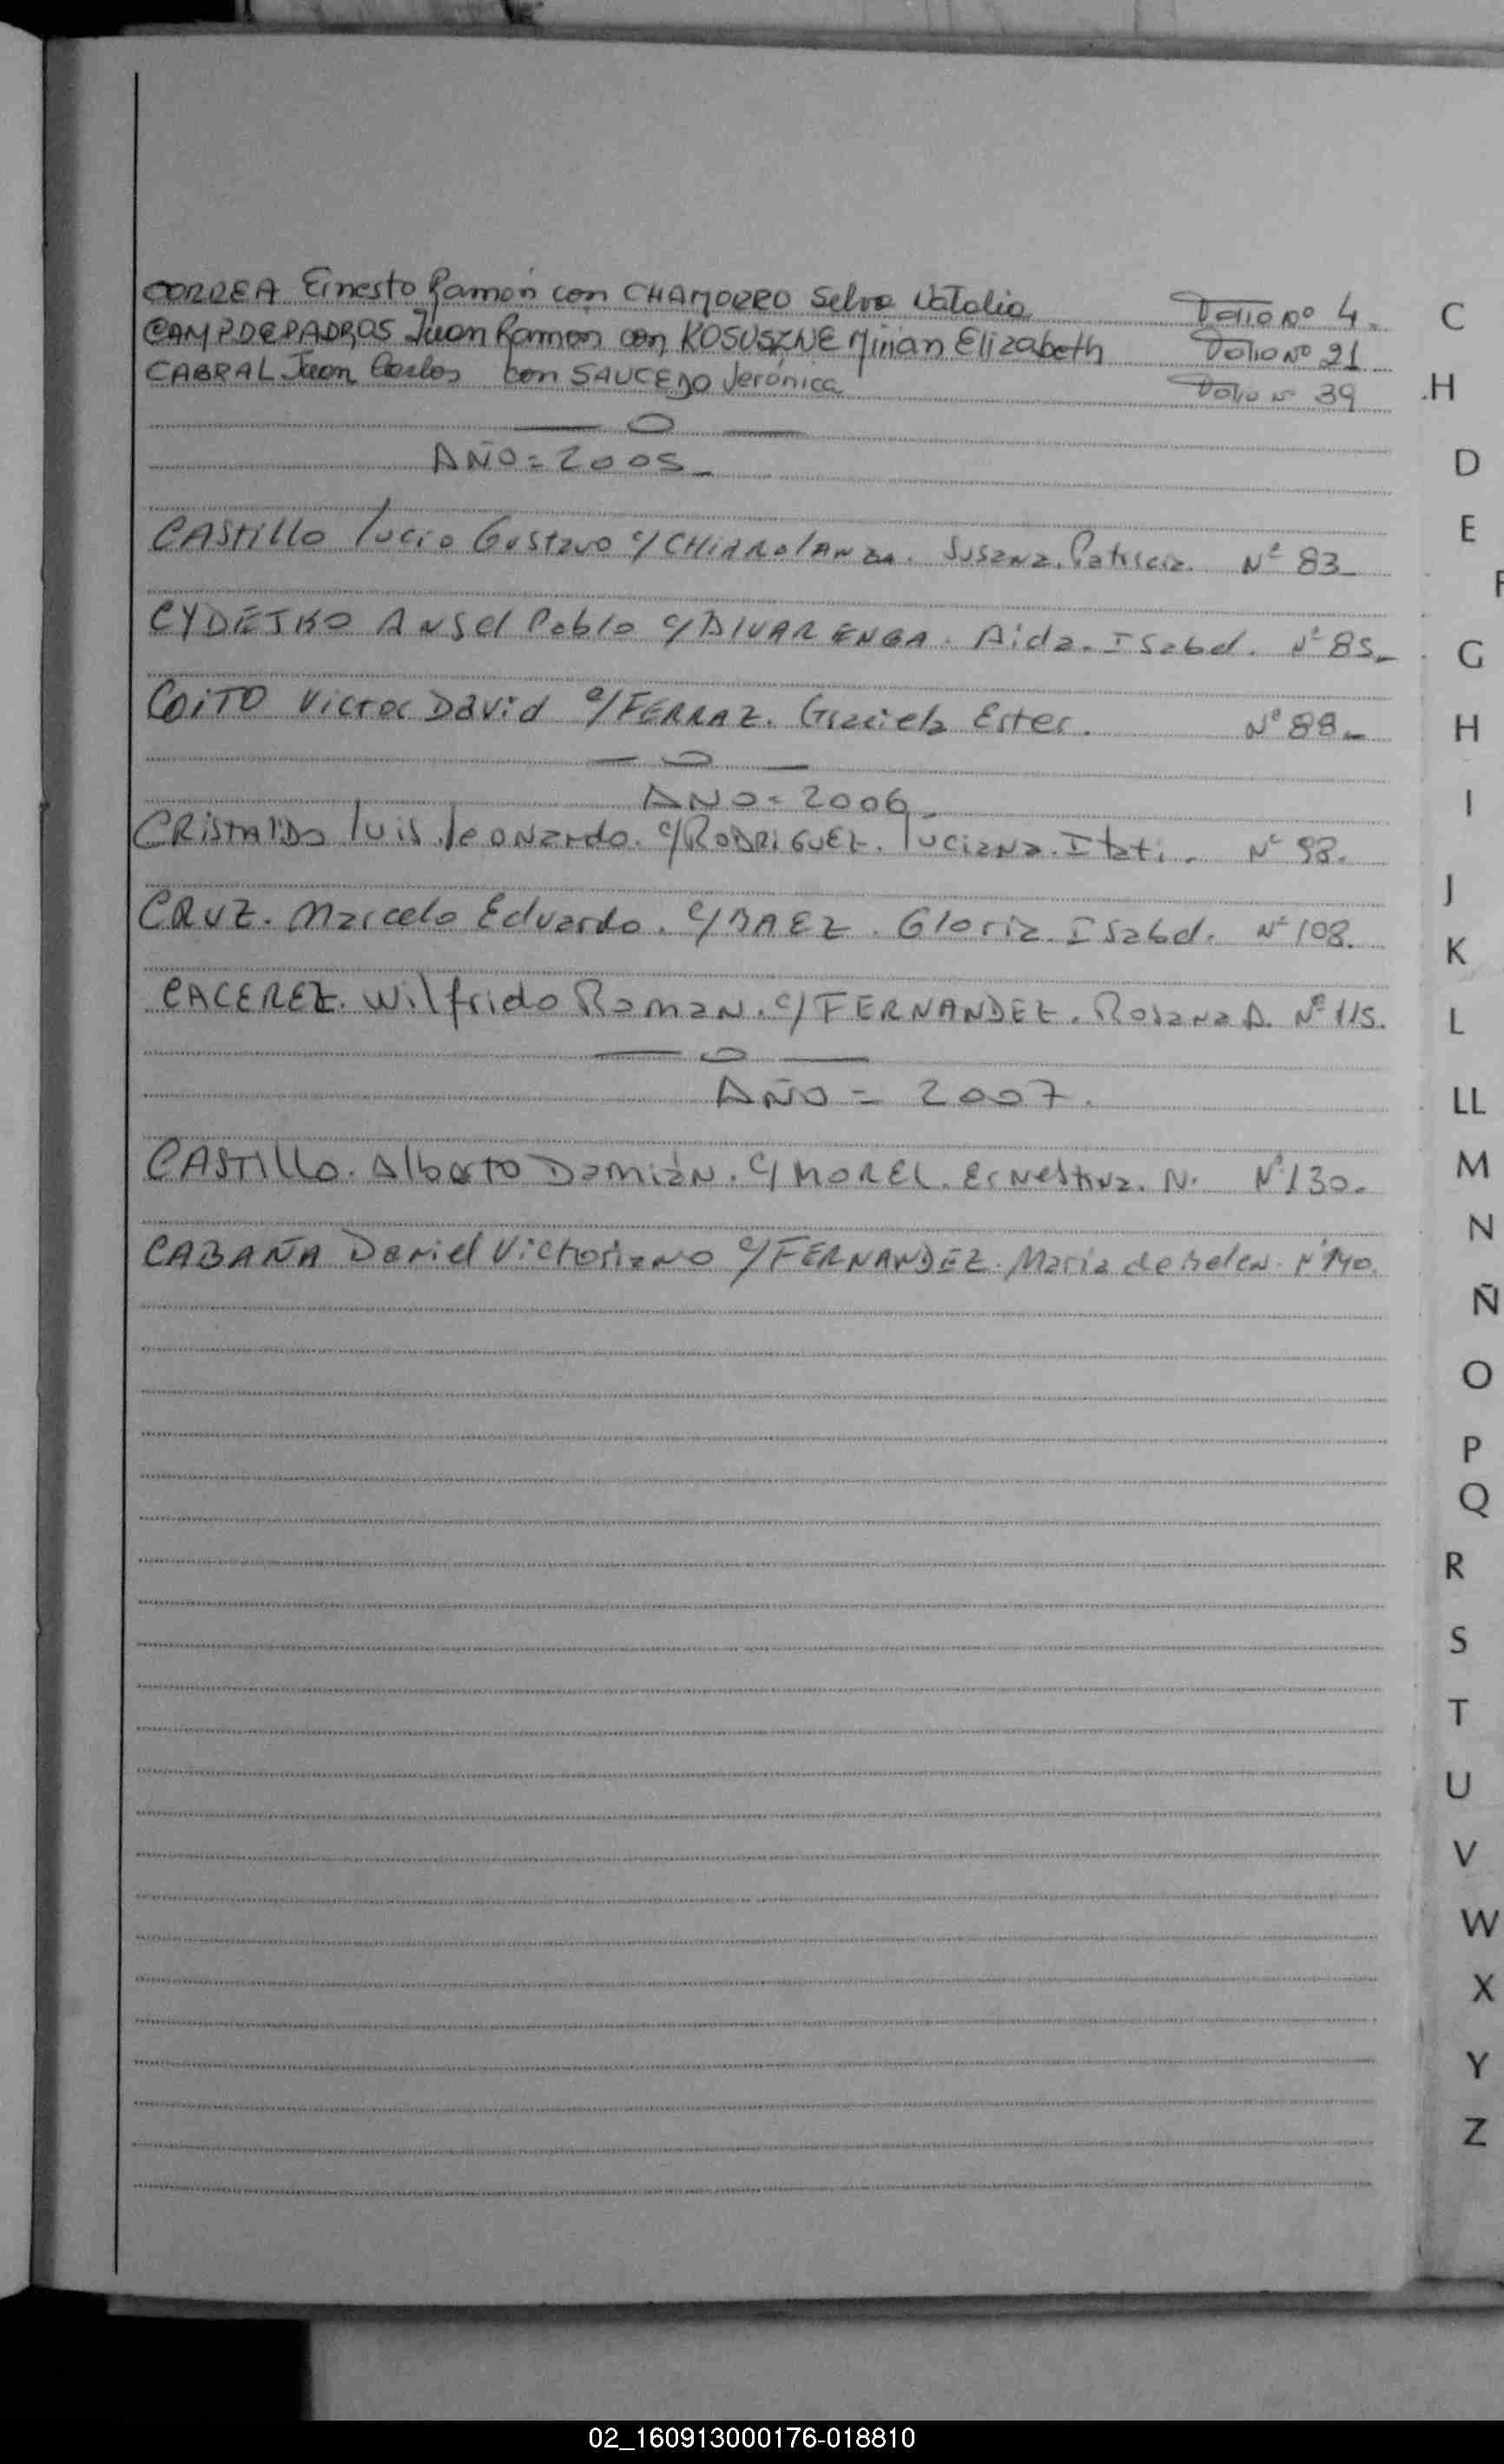 CORREA Ernesto Ramón con CHAMORRO Selva Natalia Folio no 4.
CAMPDEPADROS Juan Ramon con KOSUSZNE Mirian Elizabeth Folio No 21
CABRAL Juan Carlos con SAUCEDO Verónica Folio N° 39
AÑO=2005_
CASTillo Lucio Gustavo c/ Susana. Patricia. Nº 83_
CYDEJKO Angel Pablo c/ALVARENGA. Aida. Isabel. Nº 85_
COiTO Victor David c/FERRAZ. Graciela Ester. Nº 88_
AÑO=2006_
CRISTALDO Luis Leonardo. c/RODRIGUEZ. Luciana. Itati. Nº 98.
CRUZ. Marcelo Eduardo. c/BAEZ. Gloria. Isabel. Nº 108.
CACEREZ. Wilfrido Roman. c/FERNANDEZ. Rosana A. Nº 115.
AÑO = 2007.
CASTillo. Alberto Damián. c/MOREL. Ernestina. N. Nº 130.
CABAÑA Dariel Victoriano c/FERNANDEZ. Maria de Belen. Nº 140.
C
H
D
E
F
G
H
I
J
K
L
LL
M
N
Ñ
O
P
Q
R
S
T
U
V
W
X
Y
Z
02_160913000176-018810